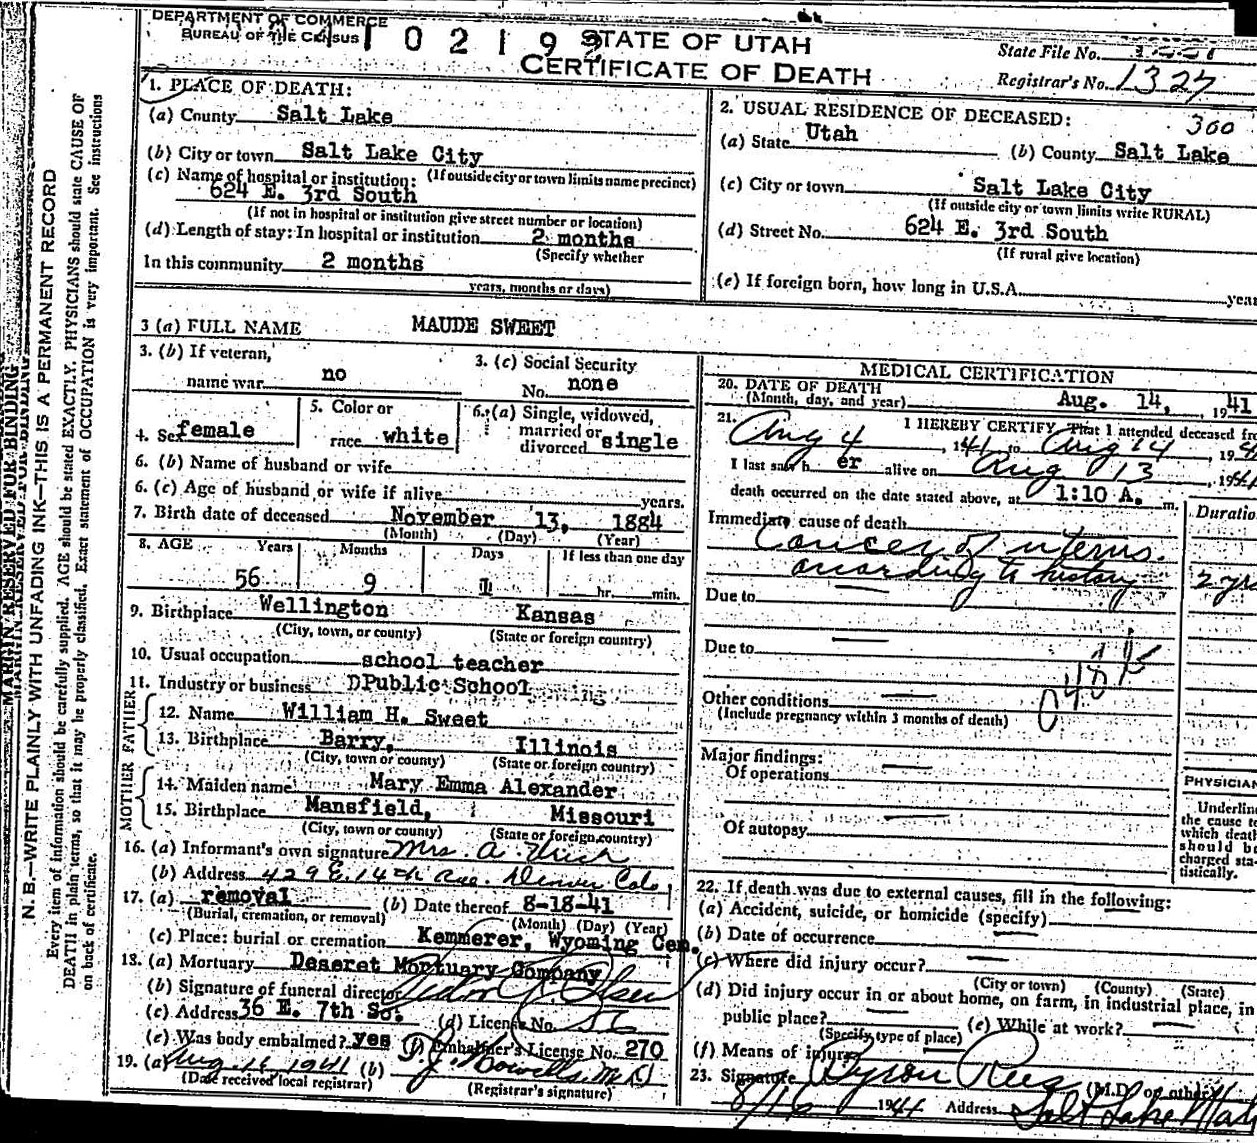 DEPARTMENT OF COMMERCE
BUREAU OF THE CENSUS
STATE OF UTAH
CERTIFICATE OF DEATH
State File No.
Registrar's No. 1327
1. PLACE OF DEATH:
(a) County Salt Lake
(b) City or town Salt Lake City
(c) Name of hospital or institution: (If outside city or town limits name precinct)
624 E. 3rd South
(If not in hospital or institution give street number or location)
(d) Length of stay: In hospital or institution 2 months
(Specify whether
In this community 2 months
years, months or days)
2. USUAL RESIDENCE OF DECEASED: 300
(a) State Utah (b) County Salt Lake
(c) City or town Salt Lake City
(If outside city or town limits write RURAL)
(d) Street No. 624 E. 3rd South
(If rural give location)
(e) If foreign born, how long in U.S.A. year
3 (a) FULL NAME MAUDE SWEET
3. (b) If veteran,
name war no
3. (c) Social Security
No. none
4. Sex female
5. Color or
race white
6. (a) Single, widowed,
married or
divorced single
6. (b) Name of husband or wife
6. (c) Age of husband or wife if alive years.
7. Birth date of deceased November 13, 1884
(Month) (Day) (Year)
8. AGE Years Months Days If less than one day
56 9 1 hr. min.
9. Birthplace Wellington Kansas
(City, town, or county) (State or foreign country)
10. Usual occupation school teacher
11. Industry or business Public School
FATHER
12. Name William H. Sweet
13. Birthplace Barry, Illinois
(City, town or county) (State or foreign country)
MOTHER
14. Maiden name Mary Emma Alexander
15. Birthplace Mansfield, Missouri
(City, town or county) (State or foreign country)
16. (a) Informant's own signature Mrs. A.
(b) Address 429 E. 14th Ave. Denver Colo
17. (a) removal (b) Date thereof 8-18-41
(Burial, cremation, or removal) (Month) (Day) (Year)
(c) Place: burial or cremation Kemmerer, Wyoming Cem.
18. (a) Mortuary Deseret Mortuary Company
(b) Signature of funeral director
(c) Address 36 E. 7th So. (d) License No.
(e) Was body embalmed? yes Embalmer's License No. 270
19. (a) Aug. 16, 1941 (b)
(Date received local registrar) (Registrar's signature)
MEDICAL CERTIFICATION
20. DATE OF DEATH
(Month, day, and year) Aug. 14, 1941
21. I HEREBY CERTIFY That I attended deceased fr
Aug 4, 1941 to Aug 14, 19
I last saw h er alive on Aug 13, 1941
death occurred on the date stated above, at 1:10 A. m.
Immediate cause of death Duratio
Cancer of uterus
according to history 2 yrs
Due to
Due to
Other conditions
(Include pregnancy within 3 months of death)
Major findings:
Of operations
Of autopsy
PHYSICIAN
Underlin
the cause to
which death
should be
charged sta-
tistically.
22. If death was due to external causes, fill in the following:
(a) Accident, suicide, or homicide (specify)
(b) Date of occurrence
(c) Where did injury occur?
(City or town) (County) (State)
(d) Did injury occur in or about home, on farm, in industrial place, in
public place? (e) While at work?
(Specify type of place)
(f) Means of injury
23. Signature Byron Rees (M.D. or other)
8/16 1941 Address Salt Lake
MARGIN RESERVED FOR BINDING
N. B.—WRITE PLAINLY WITH UNFADING INK—THIS IS A PERMANENT RECORD
Every item of information should be carefully supplied. AGE should be stated EXACTLY. PHYSICIANS should state CAUSE OF
DEATH in plain terms, so that it may be properly classified. Exact statement of OCCUPATION is very important. See instructions
on back of certificate.